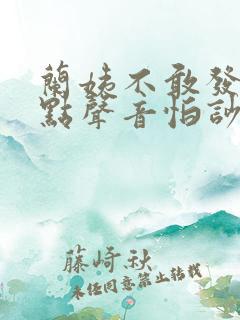 蘭姨不敢發
點聲音怕訬
藤崎秋
未经同意禁止转载